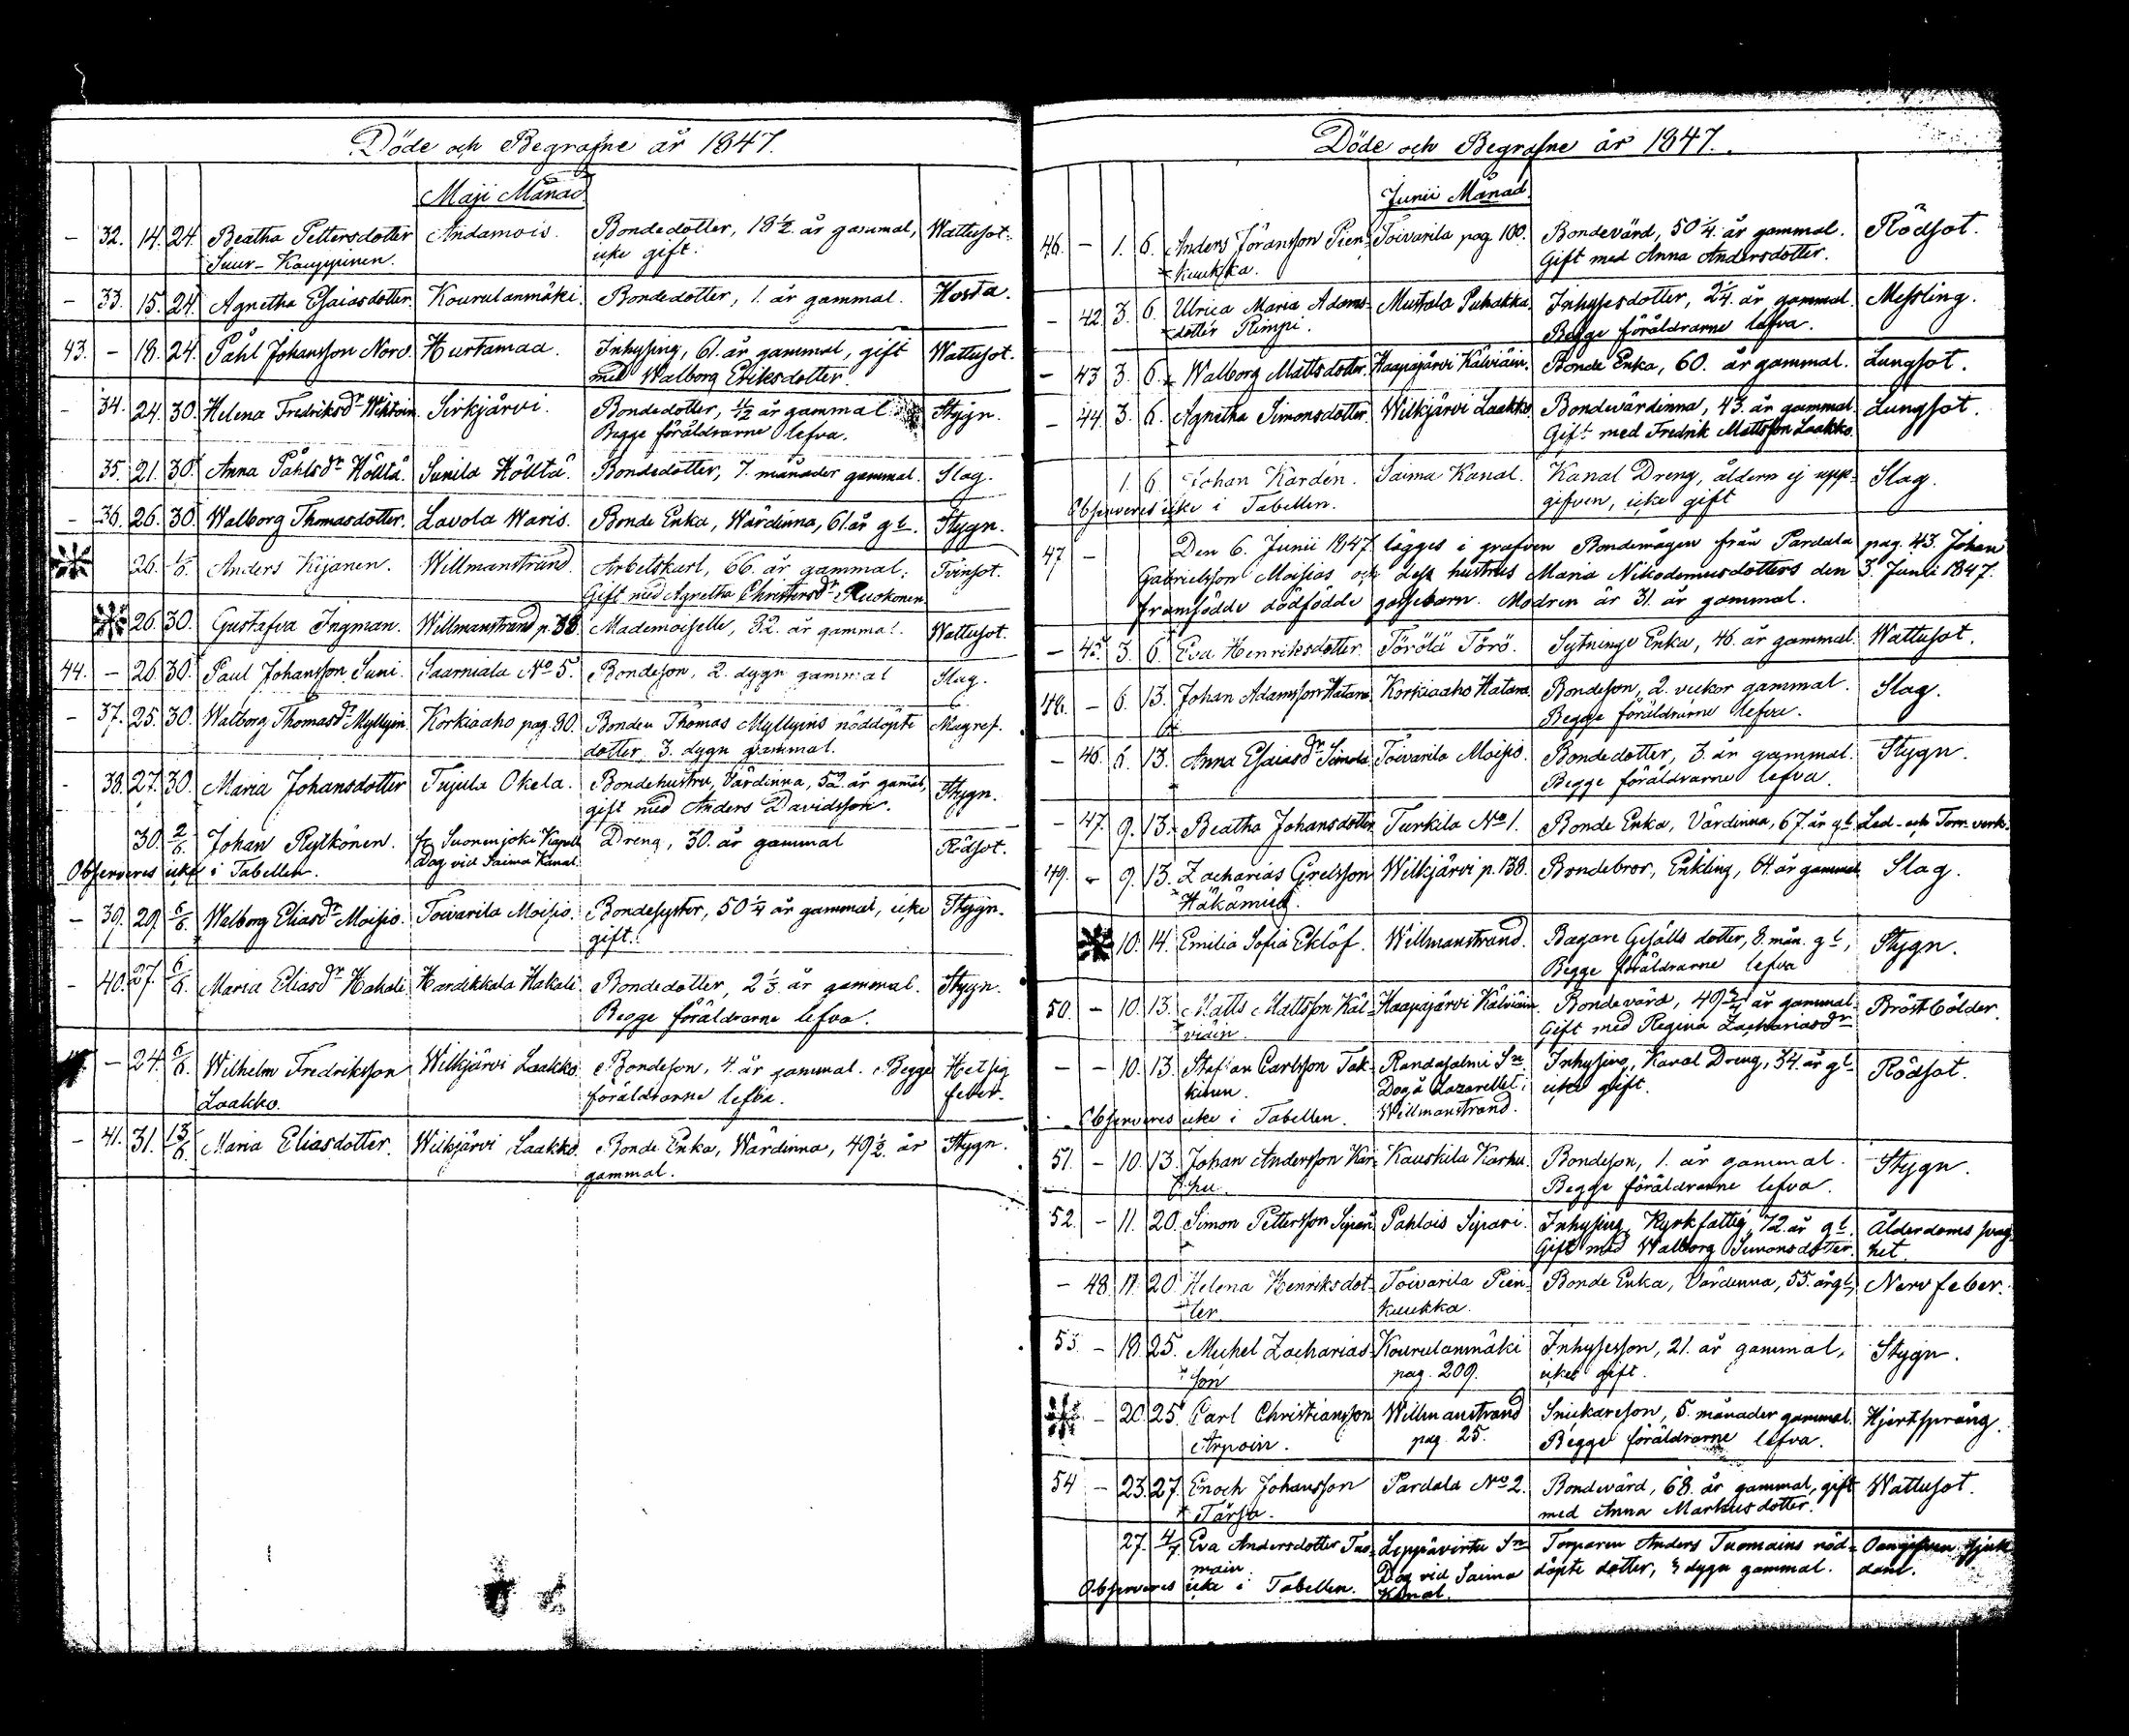 Döde och Begrafne år 1847.
Maji Månad.
– 32. 14. 24. Beatha Pettersdotter Andamois. Bondedotter, 18 1/2 år gammal, Wattusot.
Suur-Kauppinen. icke gift.
– 33. 15. 24. Agnetha Esaiasdotter. Kourulanmäki. Bondedotter, 1. år gammal. Hosta.
43. – 18. 24. Påhl Johansson Nord. Hurtamaa. Inhysing, 61. år gammal, gift Wattusot.
med Walborg Eriksdotter.
– 34. 24. 30. Helena Fredriksdr Sirkjärvi. Bondedotter, 11/12 år gammal Stygn.
Begge föräldrarne lefva.
35. 21. 30. Anna Påhlsdr Höltä. Sunila Höltä. Bondedotter, 7. månader gammal. Slag.
– 36. 26. 30. Walborg Thomasdotter. Lavola Waris. Bonde Enka, Wärdinna, 61. år gl. Stygn.
26. 1/6. Anders Kijanen. Willmanstrand. Arbetskarl, 66. år gammal; Tvinsot.
Gift med Agnetha Christersdr Ruokonen
26. 30. Gustafva Ingman. Willmanstrand p. 38. Mademoiselle, 32. år gammal. Wattusot.
44. – 26. 30. Paul Johansson Suni. Saarniala No 5. Bondeson, 2. dygn gammal Slag.
– 37. 25. 30. Walborg Thomasdr Myllyin. Korkiaaho pag. 30. Bonden Thomas Myllyins nöddöpte Magref.
dotter, 3. dygn gammal.
– 38. 27. 30. Maria Johansdotter Tujula Okela. Bondehustru, Värdinna, 52. år gamal, Stygn.
gift med Anders Davidsson.
30. 2/6. Johan Rytkönen. fr Suonenjoki Kapell Dreng, 30. år gammal Rödsot.
Observeres icke i Tabellen. Dog vid Saima Kanal.
– 39. 29. 6/6. Walborg Eliasdr Moisio. Toivarila Moisio. Bondesyster, 50 1/4 år gammal, icke Stygn.
gift.
– 40. 27. 6/6. Maria Eliasdr Hakali Hardikkala Hakali. Bondedotter, 2 1/3 år gammal. Stygn.
Begge föräldrarne lefva.
– 24. 6/6. Wilhelm Fredriksson Wilkjärvi Laakko. Bondeson, 4. år gammal. Begge Hetsig
Laakko. föräldrarne lefva. feber.
– 41. 31. 13/6. Maria Eliasdotter. Wilkjärvi Laakko. Bonde Enka, Wärdinna, 49 1/2. år Stygn.
gammal.
Döde och Begrafne år 1847.
Junii Månad.
46. – 1. 6. Anders Jöransson Pien- Toivarila pag. 100. Bondevärd, 50 1/4. år gammal. Rödsot.
kuukka. Gift med Anna Andersdotter.
– 42. 3. 6. Ulrica Maria Adams- Mustola Puhakka. Inhysesdotter, 2 1/4. år gammal. Messling.
dotter Rimpi. Begge föräldrarne lefva.
– 43. 3. 6. Walborg Mattsdotter. Haapajärvi Kälviäin. Bonde Enka, 60. år gammal. Lungsot.
– 44. 3. 6. Agnetha Simonsdotter. Wilkjärvi Laakko. Bondevärdinna, 43. år gammal. Lungsot.
Gift med Fredrik Mattsson Laakko.
1. 6. Johan Kardén. Saima Kanal. Kanal Dreng, åldern ej upp- Slag.
Observeres icke i Tabellen. gifven, icke gift
47 – Den 6. Junii 1847 lägges i grafven Bondemågen från Pardala pag. 43. Johan
Gabrielsson Moisias och dess hustrus Maria Nikodemusdotters den 3. Junii 1847.
framfödde dödfödde gossebarn. Modren är 31. år gammal.
– 45. 3. 6. Eva Henriksdotter. Törölä Törö. Sytninge Enka, 46. år gammal. Wattusot.
48. – 6. 13. Johan Adamsson Hatara. Korkiaaho Hatara. Bondeson, 2. veckor gammal. Slag.
Begge föräldrarne lefva.
– 46. 6. 13. Anna Esaiasdr Simola. Toivarila Moisio. Bondedotter, 3. år gammal. Stygn.
Begge föräldrarne lefva.
– 47. 9. 13. Beatha Johansdotter Turkila No 1. Bonde Enka, Värdinna, 67. år gl. Led- och Torr-verk.
49. – 9. 13. Zacharias Grelsson Wilkjärvi p. 138. Bondebror, Enkling, 64. år gammal. Slag.
Häkämies.
10. 14. Emilia Sofia Eklöf. Willmanstrand. Bagare Gesälls dotter, 8. mån. gl., Stygn.
Begge föräldrarne lefva
50. – 10. 13. Matts Mattsson Käl- Haapajärvi Kälviäin. Bondevärd, 49 3/4 år gammal. Bröstbölder.
viäin. Gift med Regina Zachariasdr
– – 10. 13. Stefan Carlsson Tak- Randasalmi Sn Inhysing, Kanal Dreng, 34. år gl. Rödsot.
kinen. Dog å Lazarettet i icke gift.
Observeres icke i Tabellen. Willmanstrand.
51. – 10. 13. Johan Andersson Kar- Kauskila Karhu. Bondeson, 1. år gammal. Stygn.
hu. Begge föräldrarne lefva.
52. – 11. 20. Simon Pettersson Sipari Pahlois Sipari. Inhysing, Kyrkfattig, 72. år gl. Ålderdoms svag-
Gift med Walborg Simonsdotter. het.
– 48. 17. 20. Helena Henriksdot- Toivarila Pien- Bonde Enka, Värdinna, 55. år gl., Nervfeber.
ter. kuukka.
53. – 18. 25. Michel Zacharias- Kourulanmäki Inhysesson, 21. år gammal, Stygn.
son pag. 209. icke gift.
– 20. 25. Carl Christiansson Willmanstrand Snickareson, 5. månader gammal. Hjertsprång.
Arpoin. pag. 25. Begge föräldrarne lefva.
54 – 23. 27. Enoch Johansson Pardala No 2. Bondevärd, 68. år gammal, gift Wattusot.
Tärsa. med Anna Markusdotter.
27. 4/7. Eva Andersdotter Tuo- Leppävirta Sn Torparen Anders Tuomains nöd- Oangifven sjuk-
main. Dog vid Saima döpte dotter, dygn gammal. dom.
Observeres icke i Tabellen. Kanal.